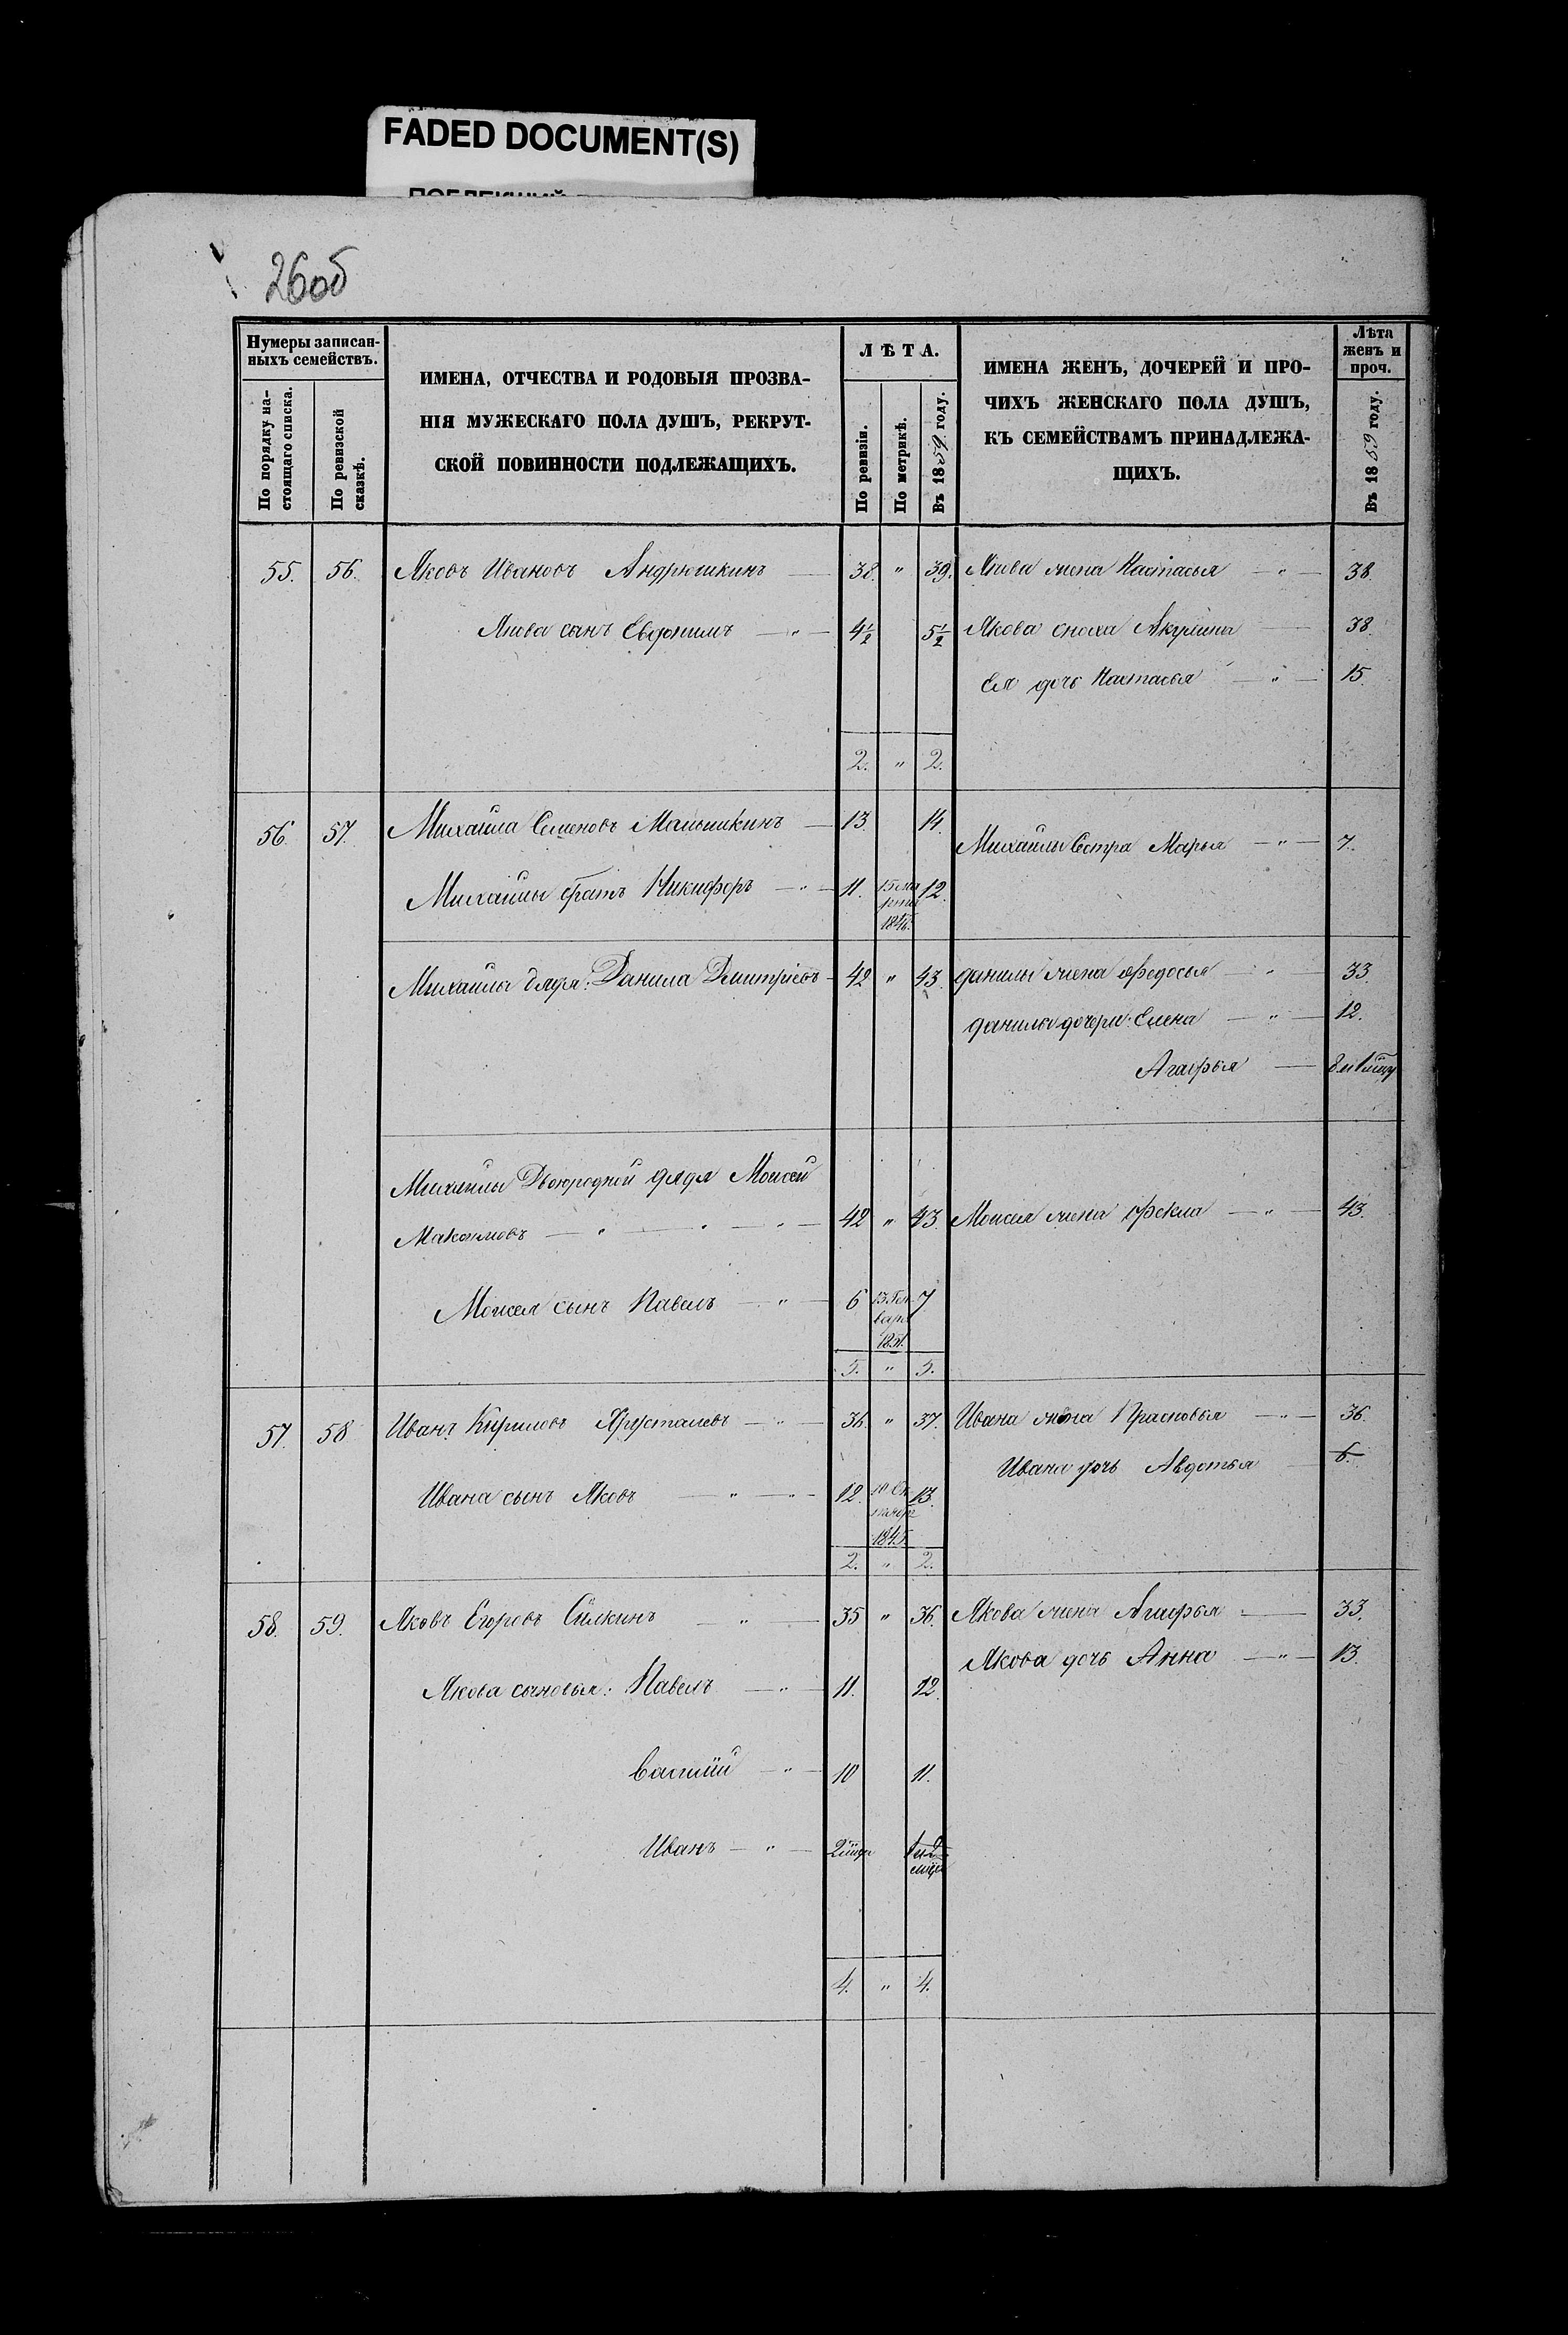 FADED DOCUMENT(S)
26об
Нумеры записан-
ныхъ семействъ.
По порядку на-
стоящаго списка.
По ревизской
сказкѣ.
ИМЕНА, ОТЧЕСТВА И РОДОВЫЯ ПРОЗВА-
НІЯ МУЖЕСКАГО ПОЛА ДУШЪ, РЕКРУТ-
СКОЙ ПОВИННОСТИ ПОДЛЕЖАЩИХЪ.
ЛѢТА.
По ревизіи.
По метрикѣ.
Въ 1859 году.
ИМЕНА ЖЕНЪ, ДОЧЕРЕЙ И ПРО-
ЧИХЪ ЖЕНСКАГО ПОЛА ДУШЪ,
КЪ СЕМЕЙСТВАМЪ ПРИНАДЛЕЖА-
ЩИХЪ.
Лѣта
женъ и
проч.
Въ 1859 году.
55. 56. Яковъ Ивановъ Андрюшкинъ 38. " 39. Якова жена Настасья " 38.
Якова сынъ Евдокимъ " 4½ 5½ Якова сноха Акулина 38.
Ея дочь Настасья " 15.
2. " 2.
56. 57. Михайла Семеновъ 13. 14.
Михайлы Сестра Марья " 7.
Михайлы братъ Никифоръ " 11. 15 ма 12.
рта
1846.
Михайлы дядя: Данила Дмитріевъ 42 " 43. Данилы жена Федосья " 33.
Данилы дочери: Елена " 12.
Агафья
Михайлы Двоюродной дядя Моисей
Максимовъ " " " 42 " 43 Моисея жена Фекла " 43.
Моисея сынъ Павелъ " 6 13 Ген 7
варя
1851.
5. " 5.
57. 58. Иванъ Кириловъ Хрусталевъ " 36. " 37. Ивана жена Прасковья " 36.
Ивана дочь Авдотья 6.
Ивана сынъ Яковъ " " 12. 10 Ок 13.
1845.
2. " 2.
58. 59. Яковъ Егоровъ Силкинъ " 35 " 36. Якова жена Агафья 33.
Якова дочь Анна " 13.
Якова сыновья: Павелъ " 11. 12.
Василій " 10 11.
Иванъ "
4. " 4.